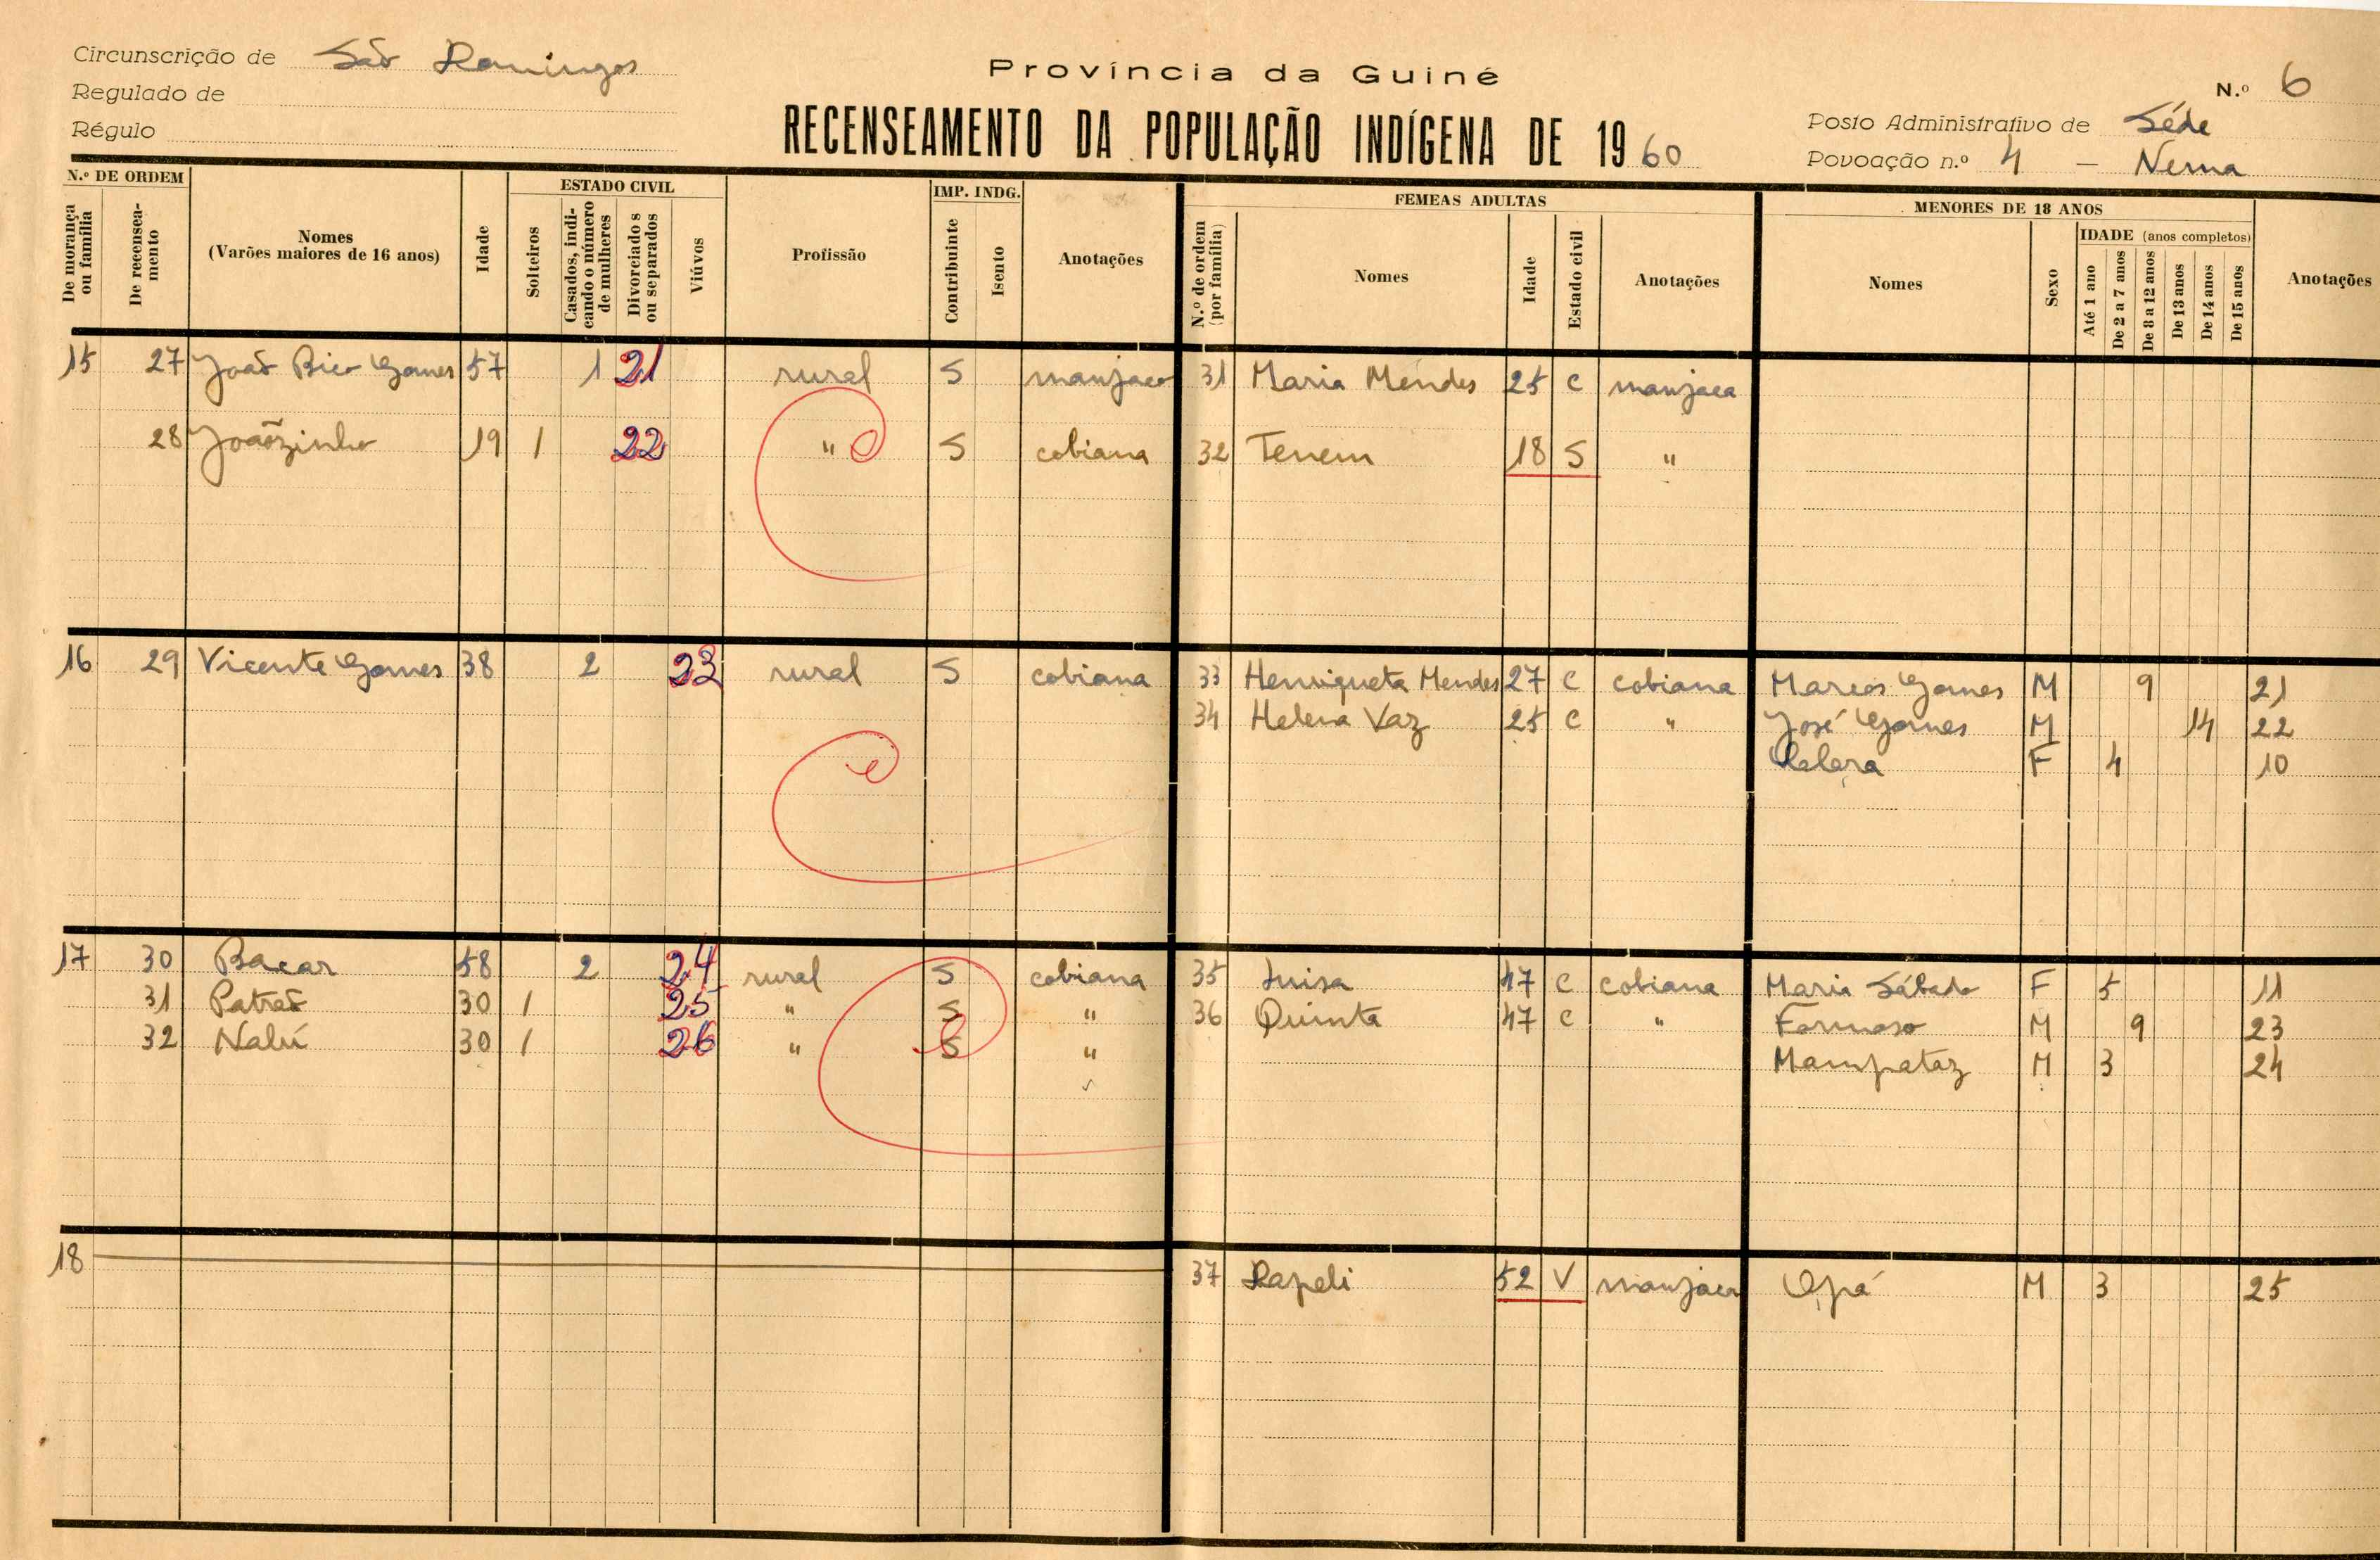 Circunscrição de São Domingos
Regulado de
Régulo
Província da Guiné
RECENSEAMENTO DA POPULAÇÃO INDÍGENA DE 1960
N.º 6
Posto Administrativo de Séde
Povoação n.º 4 — Nema
N.º DE ORDEM
De morança ou família
De recenseamento
Nomes
(Varões maiores de 16 anos)
Idade
ESTADO CIVIL
Solteiros
Casados, indicando o número de mulheres
Divorciados ou separados
Viúvos
Profissão
IMP. INDG.
Contribuinte
Isento
Anotações
FEMEAS ADULTAS
N.º de ordem (por família)
Nomes
Idade
Estado civil
Anotações
MENORES DE 18 ANOS
Nomes
Sexo
IDADE (anos completos)
Até 1 ano
De 2 a 7 anos
De 8 a 12 anos
De 13 anos
De 14 anos
De 15 anos
Anotações
15 27 João Bico Gomes 57 1 21 rural S manjaco 31 Maria Mendes 25 C manjaca
28 Joãozinho 19 1 22 " S cobiana 32 Tenem 18 S "
16 29 Vicente Gomes 38 2 23 rural S cobiana 33 Henriqueta Mendes 27 C cobiana Marcos Gomes M 9 21
34 Helena Vaz 25 C " José Gomes M 14 22
F 4 10
17 30 Bacar 58 2 24 rural S cobiana 35 Luisa 47 C cobiana Maria Sábado F 5 11
31 Patrão 30 1 25 " S " 36 Quinta 47 C " Formoso M 9 23
32 Nalú 30 1 26 " S " Mampataz M 3 24
18 37 Dapeli 52 V manjaca Opá M 3 25